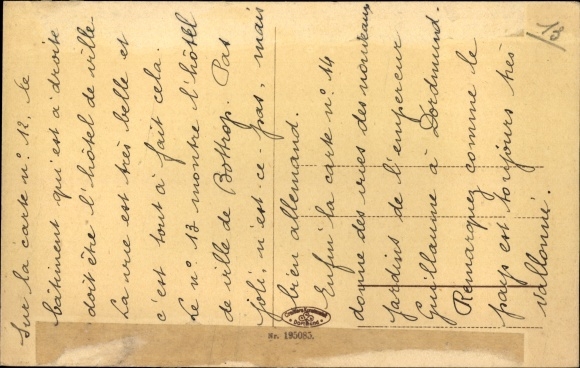 Sur la carte n°. 12, le
bâtiment qui est à droite
doit être l'hôtel de ville.
La vue est très belle et
c'est tout à fait cela.
Le n°. 13 montre l'hôtel
de ville de Bottrop. Pas
joli, n'est-ce-pas, mais
bien allemand.
Enfin la carte n°. 14
donne des vues des nouveaux
jardins de l'empereur
Guillaume à Dordmund.
Remarquez comme le
pays est toujours très
vallonné.
Nr. 195085.